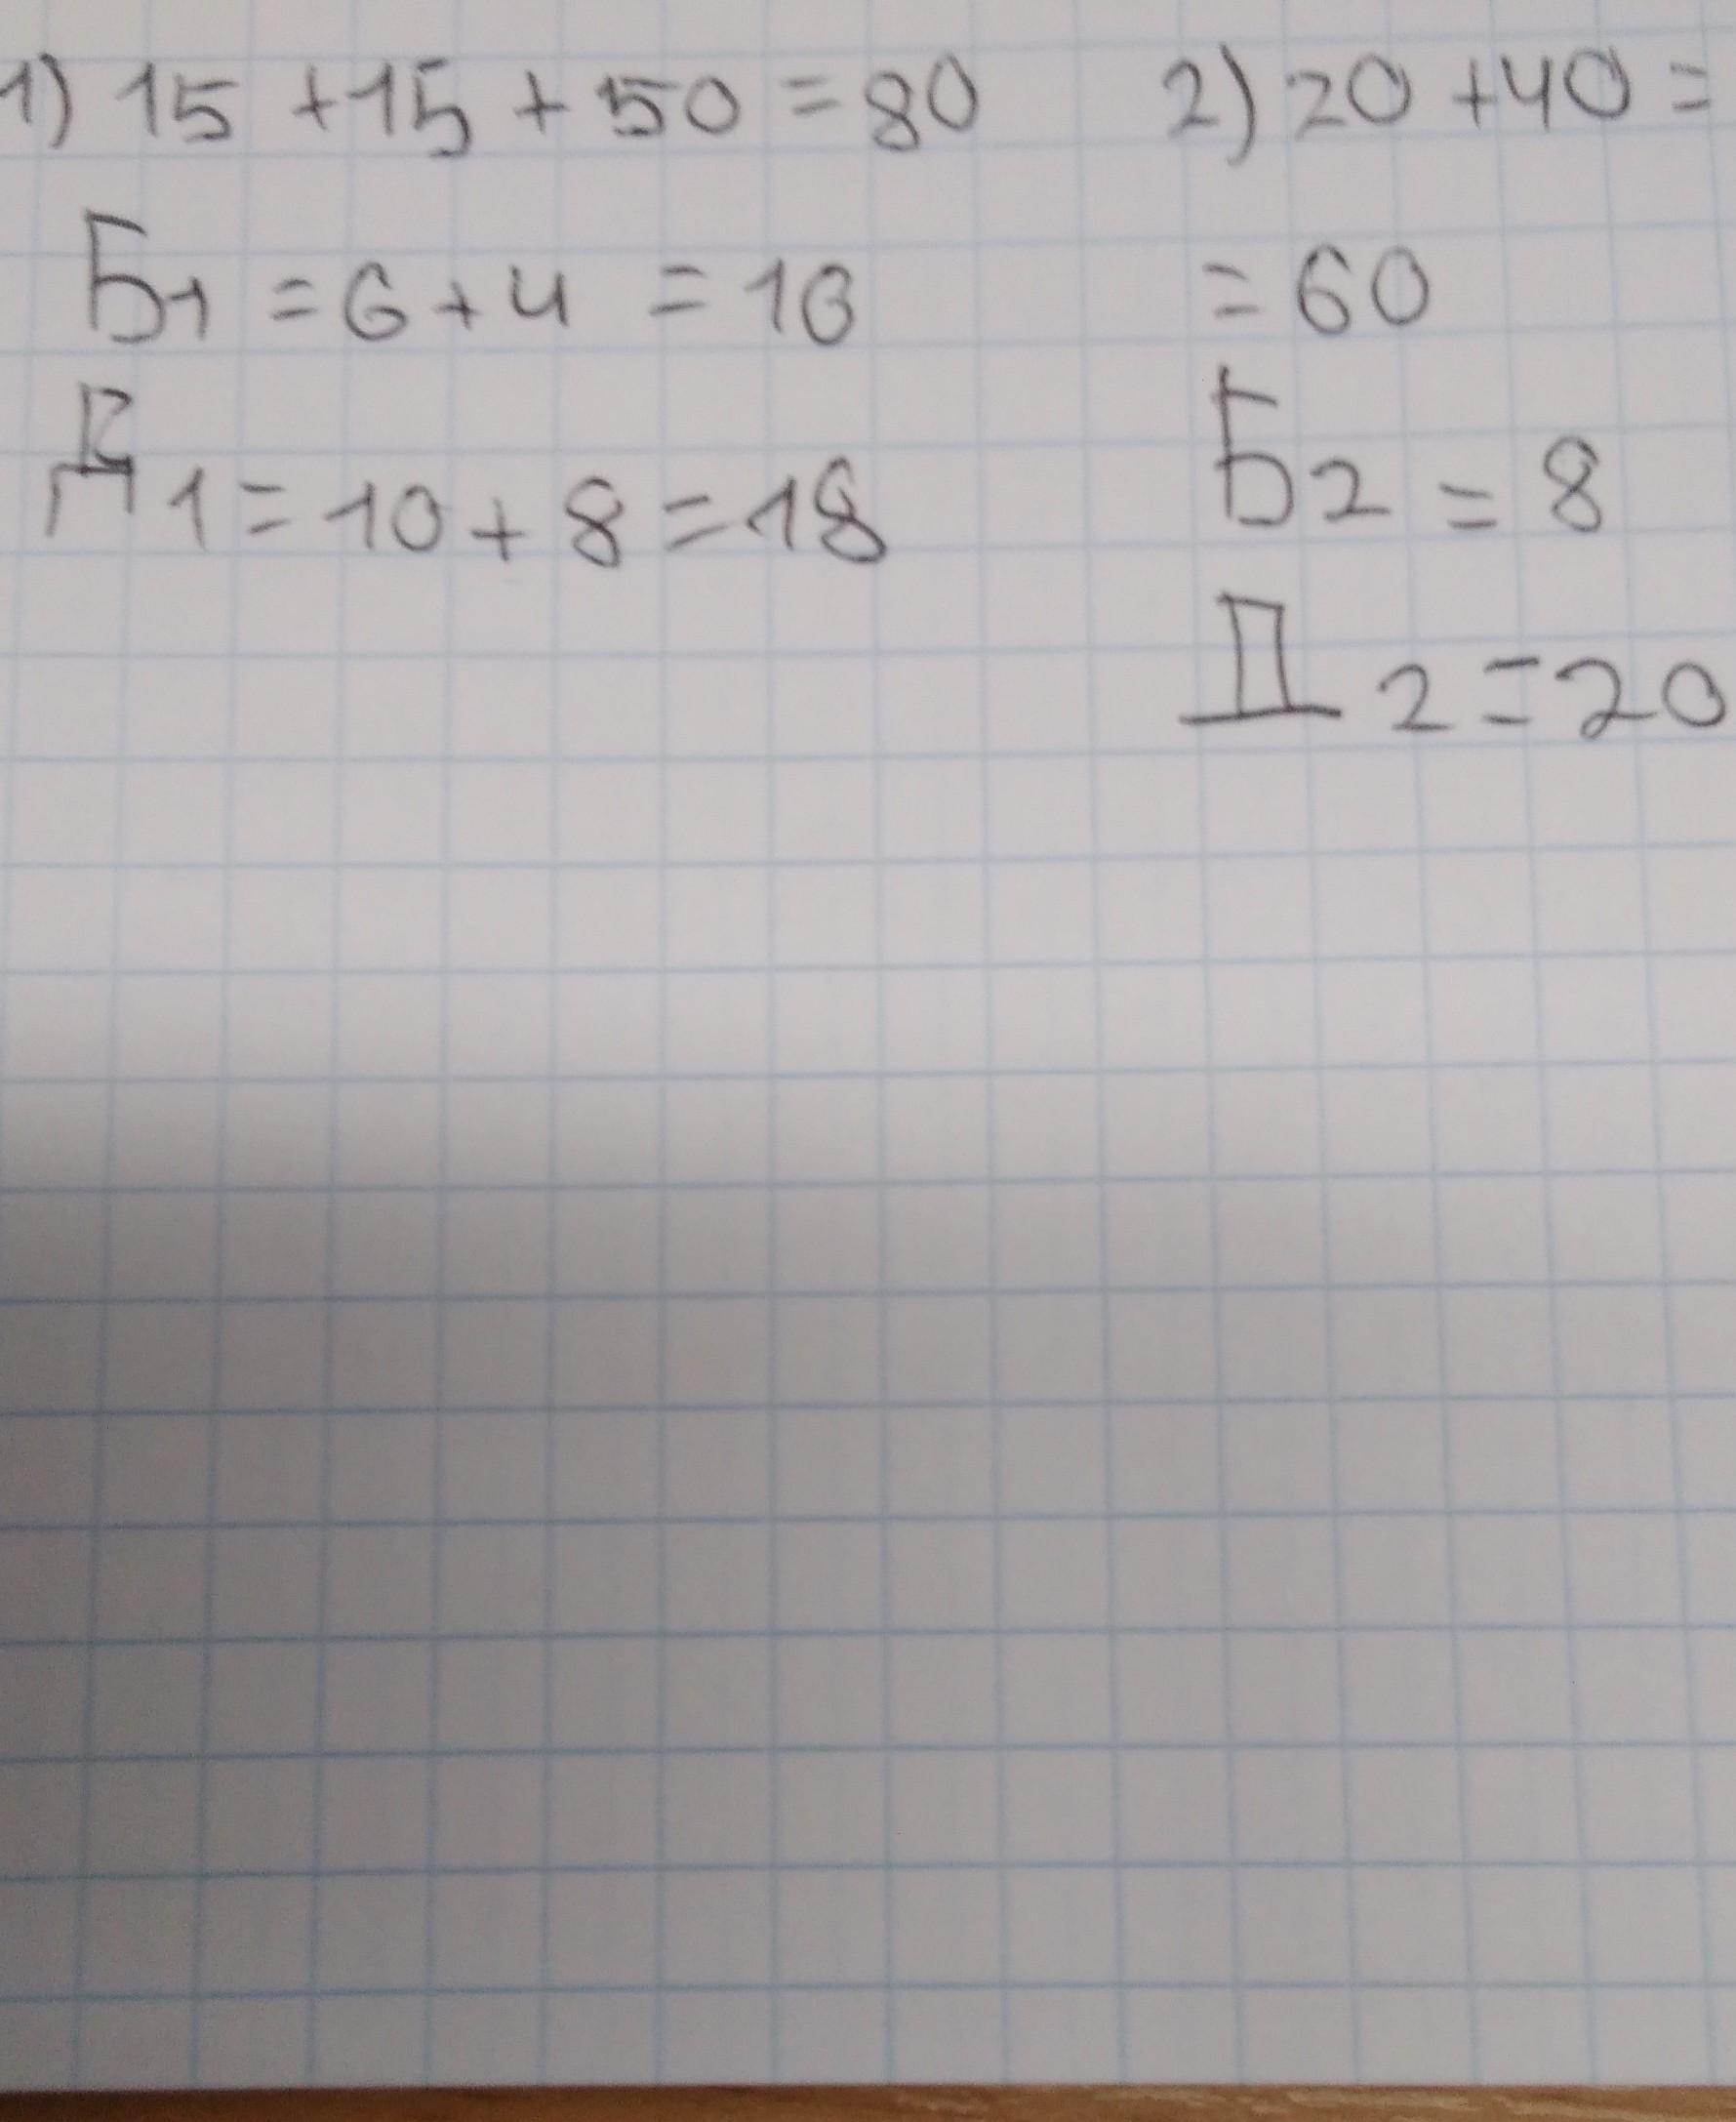 1) 15 + 15 + 50 = 80
Б1 = 6 + 4 = 10
Д1 = 10 + 8 = 18
2) 20 + 40 =
= 60
Б2 = 8
Д2 = 20